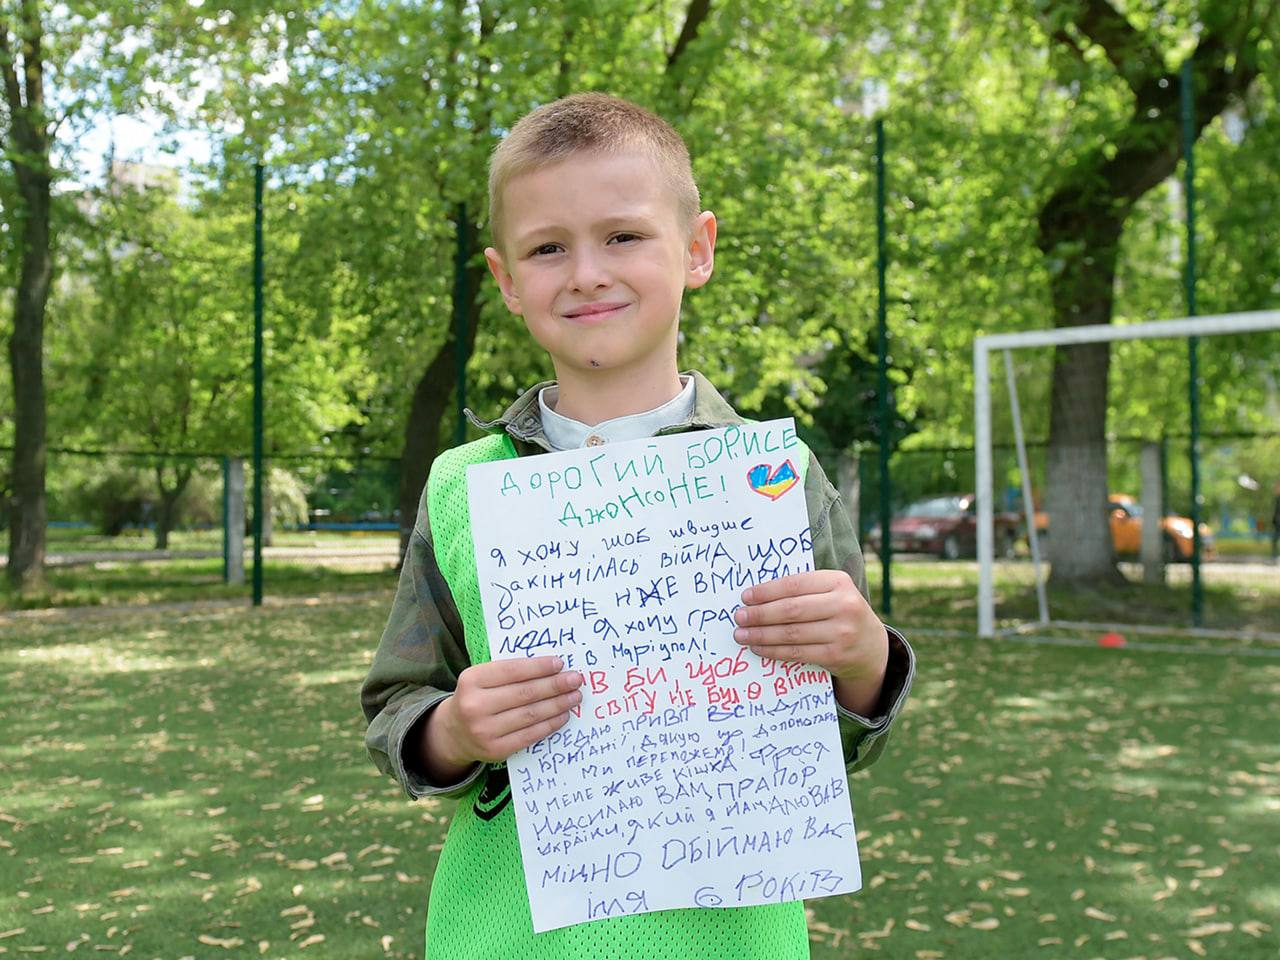 ДОРОГИЙ БОРИСЕ
ДЖОНСОНЕ!
Я ХОЧУ, ЩОБ ШВИДШЕ
ЗАКІНЧІЛАСЬ ВІЙНА, ЩОБ
БІЛЬШЕ НЖЕ ВМИРАЛИ
ЛЮДИ. Я ХОЧУ ГРА
ЖЕ В МАРІУПОЛІ.
ІВ БИ, ЩОБ У
СВІТУ НЕ БУЛО ВІЙНИ
ПЕРЕДАЮ ПРИВІТ ВСІМ ДІТЯМ
У БРИТАНІЇ, ДЯКУЮ ЩО ДОПОМОГАЄТЕ
НАМ. МИ ПЕРЕМОЖЕМ!
У МЕНЕ ЖИВЕ КІШКА ФРОСЯ
НАДСИЛАЮ ВАМ, ПРАПОР
УКРАЇНИ, ЯКИЙ Я НАМАЛЮВАВ
МІЦНО ОБІЙМАЮ ВАС
ІЛЛЯ 6 РОКІВ